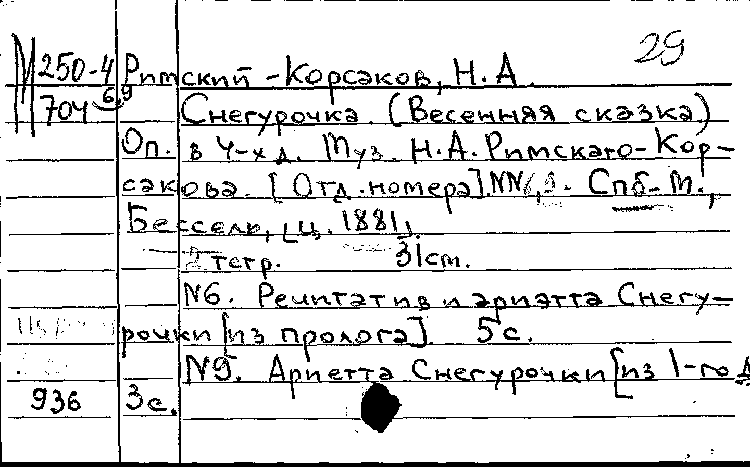 29
М 250-4 Римский-Корсаков, Н.А.
704 6,9 Снегурочка. (Весенняя сказка)
Оп. в 4-х д. Муз. Н.А. Римскаго-Кор-
сакова. [Отд. номера] NN6,9. Спб-М.,
Бессель, [ц. 1881].
2 тетр. 31см.
N6. Речитатив и ариэтта Снегу-
рочки [из пролога]. 5с.
N9. Ариетта Снегурочки [из 1-го д
936 3с.